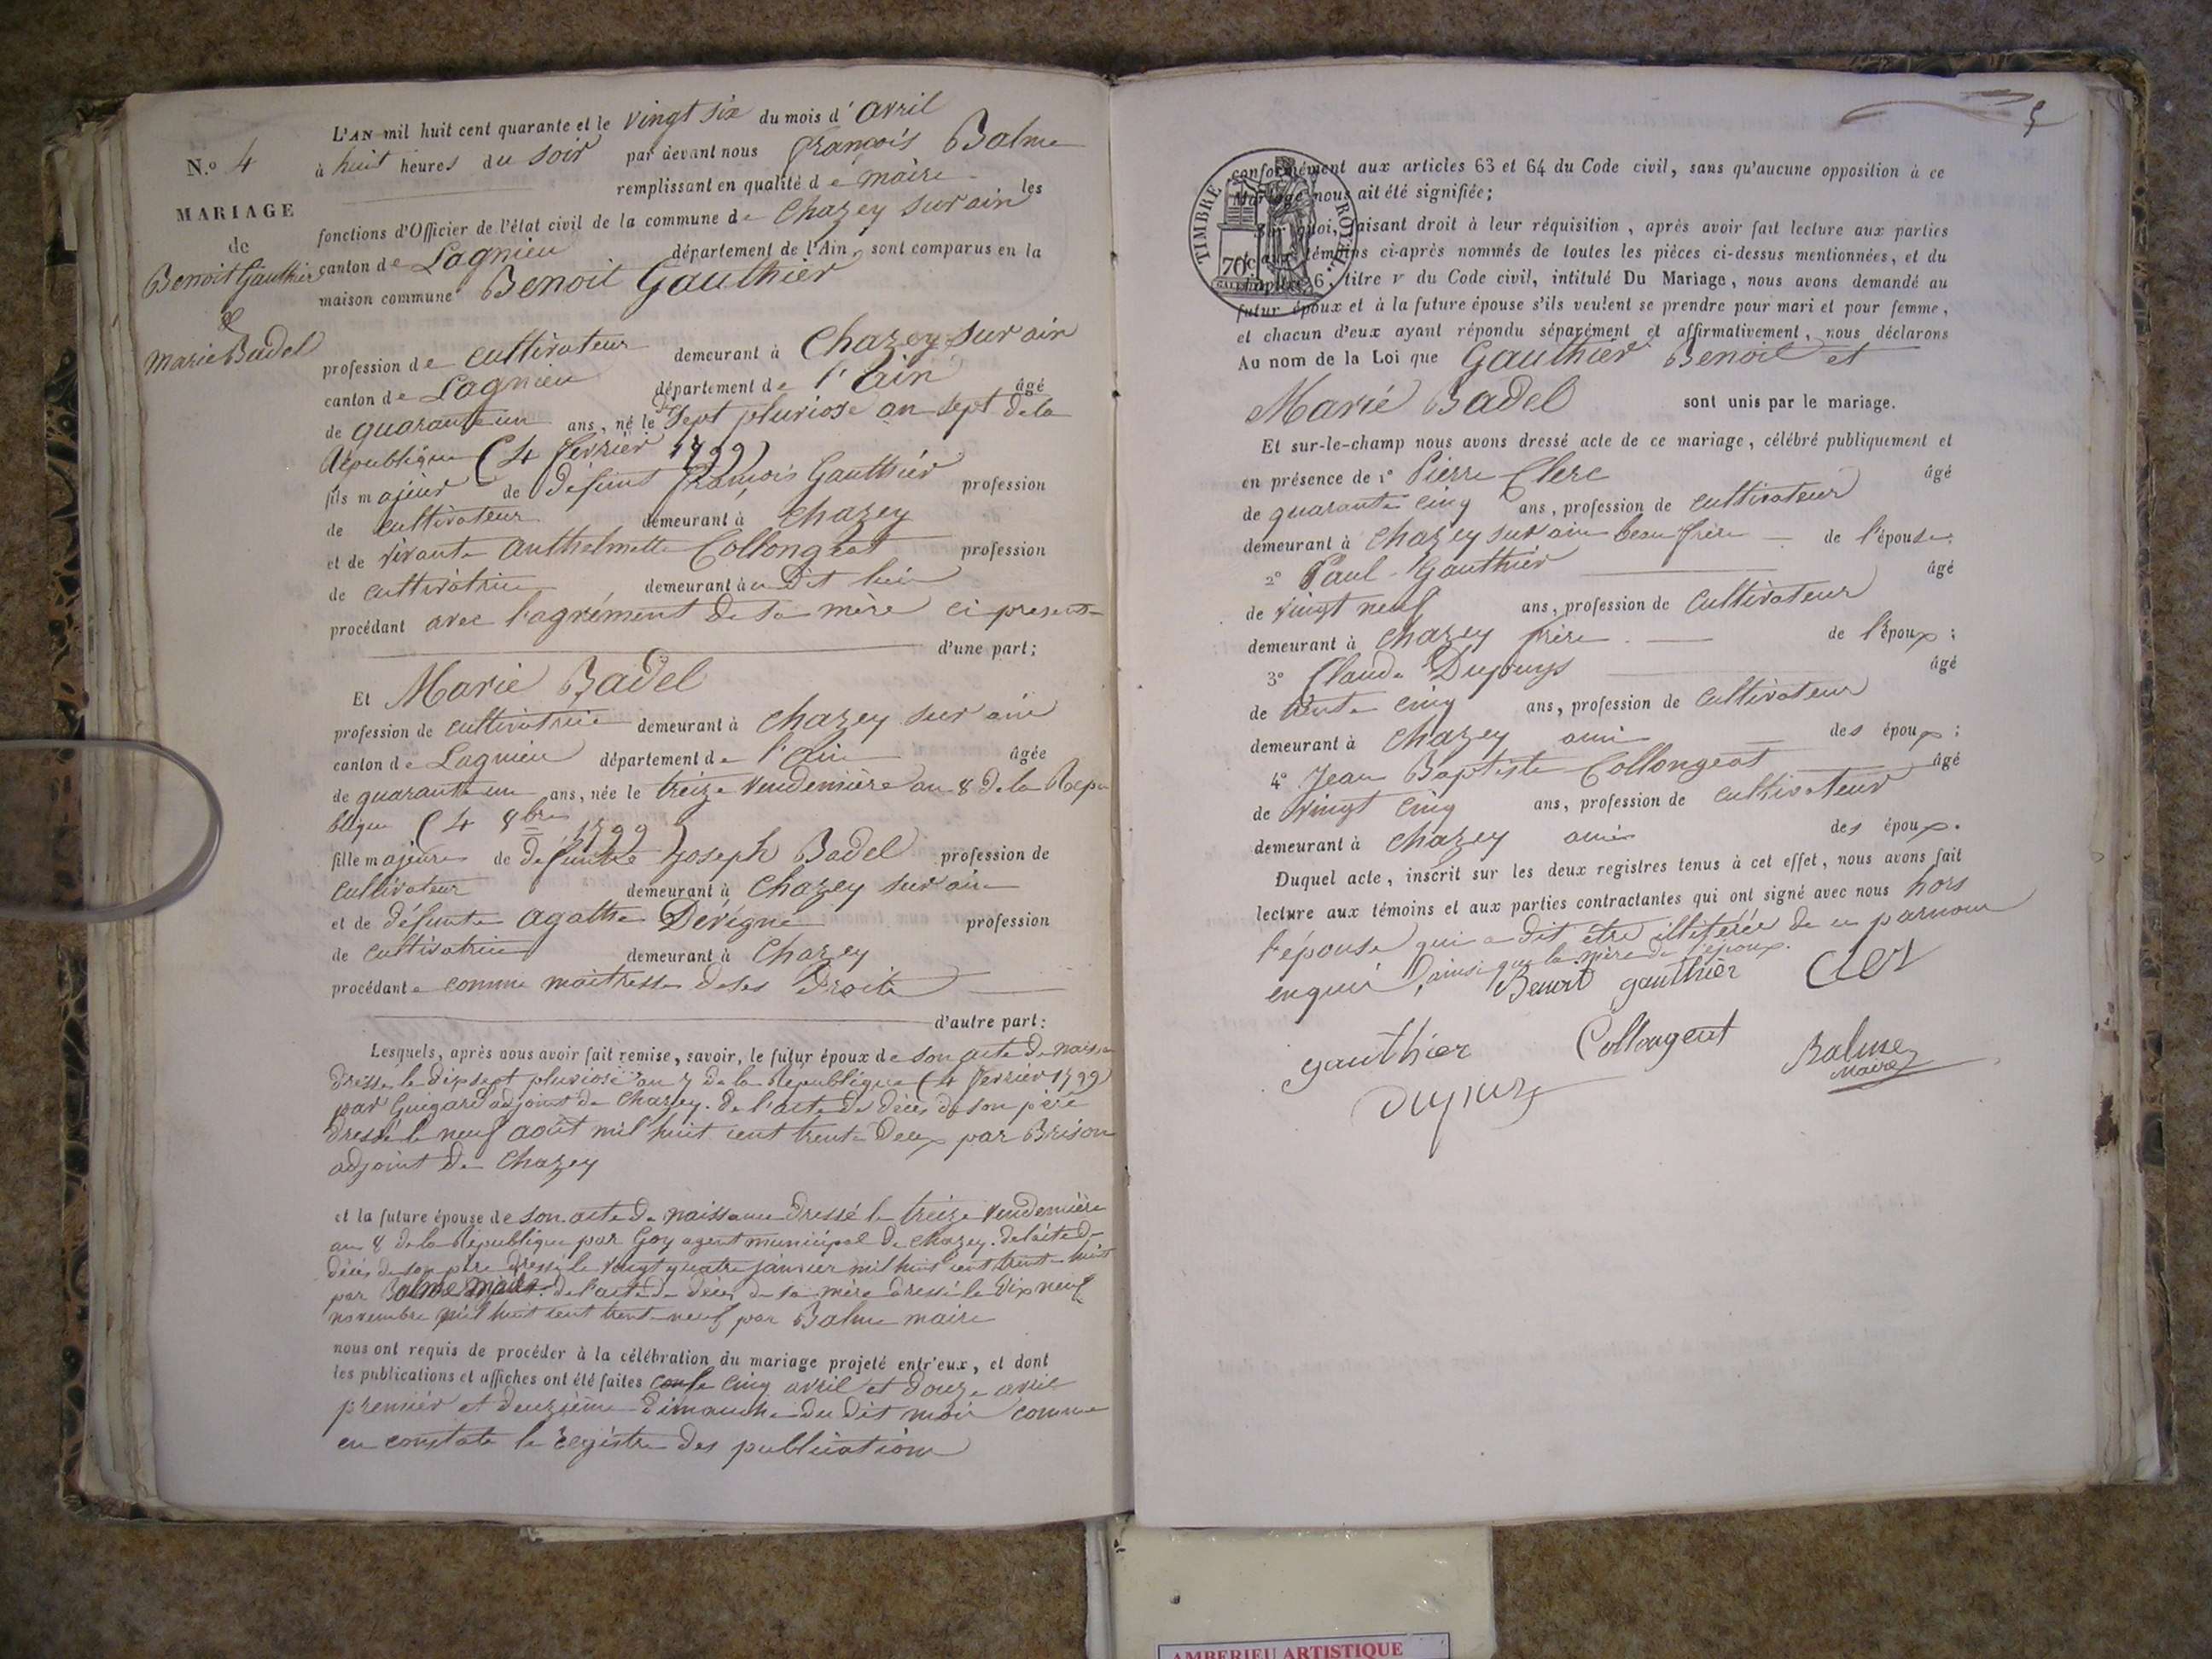 N.o 4
MARIAGE
de
Benoit Gauthier
&
Marie Badel
L'AN mil huit cent quarante et le vingt six du mois d'avril
à huit heures du soir par devant nous françois Balme
remplissant en qualité de maire les
fonctions d'Officier de l'état civil de la commune de Chazey sur ain
canton de Lagnieu département de l'Ain, sont comparus en la
maison commune Benoit Gauthier
profession de cultivateur demeurant à Chazey sur ain
canton de Lagnieu département de l'ain âgé
de quarante un ans, né le dix Sept pluviose an sept de la
République (4 février 1799)
fils majeur de défunt françois Gauthier profession
de cultivateur demeurant à Chazey
et de vivante Anthelmette Collongeat profession
de cultivatrice demeurant au dit lieu
procédant avec l'agrément de sa mère ci présente
d'une part;
Et Marie Badel
profession de cultivatrice demeurant à Chazey sur ain
canton de Lagnieu département de l'ain âgée
de quarante un ans, née le treize vendemière an 8 de la Répu
blique (4 8bre 1799)
fille majeure de défunte Joseph Badel profession de
cultivateur demeurant à Chazey sur ain
et de défunte agathe Dévigne profession
de cultivatrice demeurant à Chazey
procédante comme maitresse de ses droits
d'autre part:
Lesquels, après nous avoir fait remise, savoir, le futur époux de son acte de naiss
dressé le dix sept pluviose an 7 de la République (4 février 1799)
par Guigard adjoint de Chazey. de l'acte de décès de son père
dressé le neuf août mil huit cent trente deux par Brison
adjoint de Chazey
et la future épouse de son acte de naissance dressé le treize vendemière
an 8 de la République par Goy agent municipal de Chazey. de l'acte de
décès de son père dressé le vingt quatre janvier mil huit cent trente huit
par Balme maire. de l'acte de décès de sa mère dressé le dix neuf
novembre mil huit cent trente neuf par Balme maire
nous ont requis de procéder à la célébration du mariage projeté entr'eux, et dont
les publications et affiches ont été faites le cinq avril et douze avril
premier et deuzième dimanche du dit mois comme
en constate le régistre des publications
5
TIMBRE ROYAL
70c
conformément aux articles 63 et 64 du Code civil, sans qu'aucune opposition à ce
Mariage nous ait été signifiée;
Sur quoi, faisant droit à leur réquisition, après avoir fait lecture aux parties
et aux témoins ci-après nommés de toutes les pièces ci-dessus mentionnées, et du
chapitre 6, titre v du Code civil, intitulé Du Mariage, nous avons demandé au
futur époux et à la future épouse s'ils veulent se prendre pour mari et pour femme,
et chacun d'eux ayant répondu séparément et affirmativement, nous déclarons
Au nom de la Loi que Gauthier Benoit et
Marie Badel sont unis par le mariage.
Et sur-le-champ nous avons dressé acte de ce mariage, célébré publiquement et
en présence de 1° Pierre Clerc âgé
de quarante cinq ans, profession de cultivateur
demeurant à Chazey sur ain beau frère de l'épouse;
2° Paul Gauthier âgé
de vingt neuf ans, profession de cultivateur
demeurant à Chazey frère de l'époux;
3° Claude Dupuys âgé
de trente cinq ans, profession de cultivateur
demeurant à Chazey ami des époux;
4° Jean Baptiste Collongeat âgé
de vingt cinq ans, profession de cultivateur
demeurant à Chazey ami des époux.
Duquel acte, inscrit sur les deux registres tenus à cet effet, nous avons fait
lecture aux témoins et aux parties contractantes qui ont signé avec nous hors
l'épouse qui a dit être illitérée de ce par nous
enquis, ainsi que la mère de l'époux.
Benoit gauthier Cler
gauthier Collongeat Balme
maire
AMBERIEU ARTISTIQUE